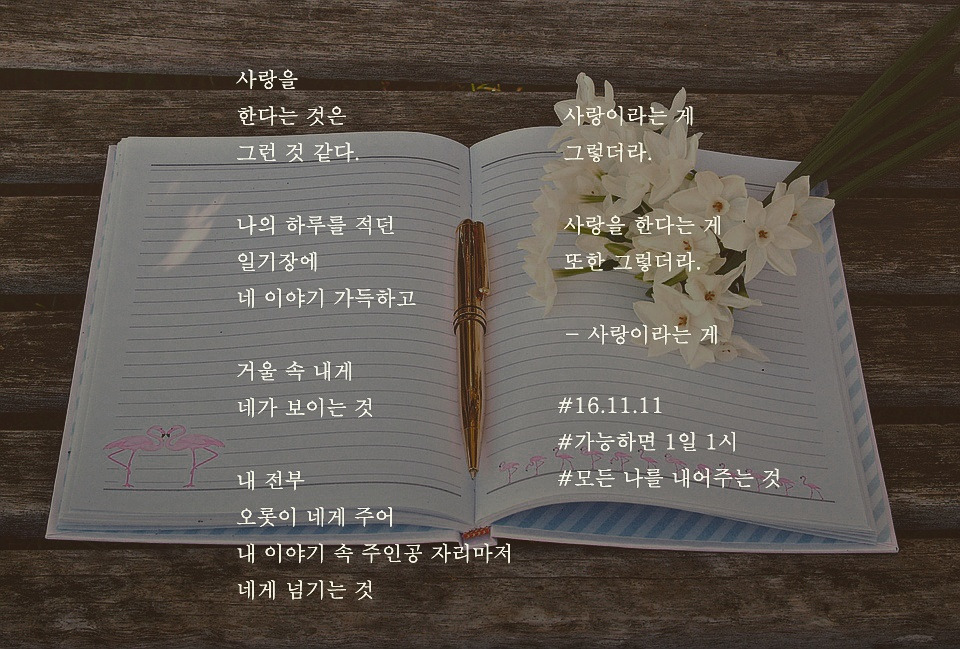 사랑을
한다는 것은
그런 것 같다.
나의 하루를 적던
일기장에
네 이야기 가득하고
거울 속 내게
네가 보이는 것
내 전부
오롯이 네게 주어
내 이야기 속 주인공 자리마저
네게 넘기는 것
사랑이라는 게
그렇더라.
사랑을 한다는 게
또한 그렇더라.
- 사랑이라는 게
#16.11.11
#가능하면 1일 1시
#모든 나를 내어주는 것